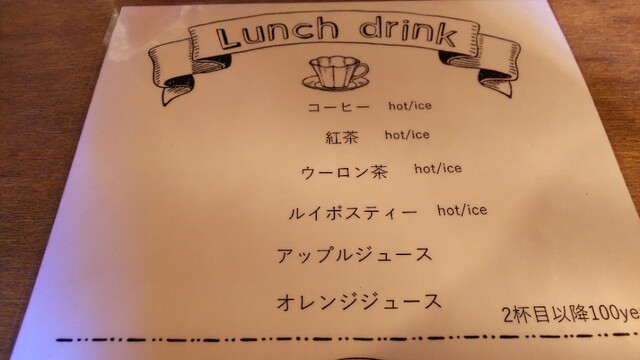 Lunch drink
コーヒー hot/ice
紅茶 hot/ice
ウーロン茶 hot/ice
ルイボスティー hot/ice
アップルジュース
オレンジジュース
2杯目以降100ye